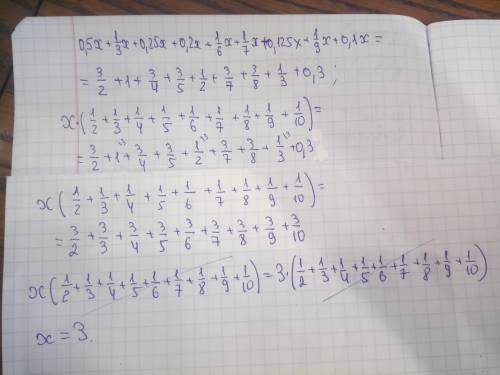 0,5x+1/3x+0,25x+0,2x+1/6x+1/7x+0,125x+1/9x+0,1x=
=3/2+1+3/4+3/5+1/2+3/7+3/8+1/3+0,3;
x·(1/2+1/3+1/4+1/5+1/6+1/7+1/8+1/9+1/10)=
=3/2+1+3/4+3/5+1/2+3/7+3/8+1/3+0,3
x(1/2+1/3+1/4+1/5+1/6+1/7+1/8+1/9+1/10)=
=3/2+3/3+3/4+3/5+3/6+3/7+3/8+3/9+3/10
x(1/2+1/3+1/4+1/5+1/6+1/7+1/8+1/9+1/10)=3·(1/2+1/3+1/4+1/5+1/6+1/7+1/8+1/9+1/10)
x=3.